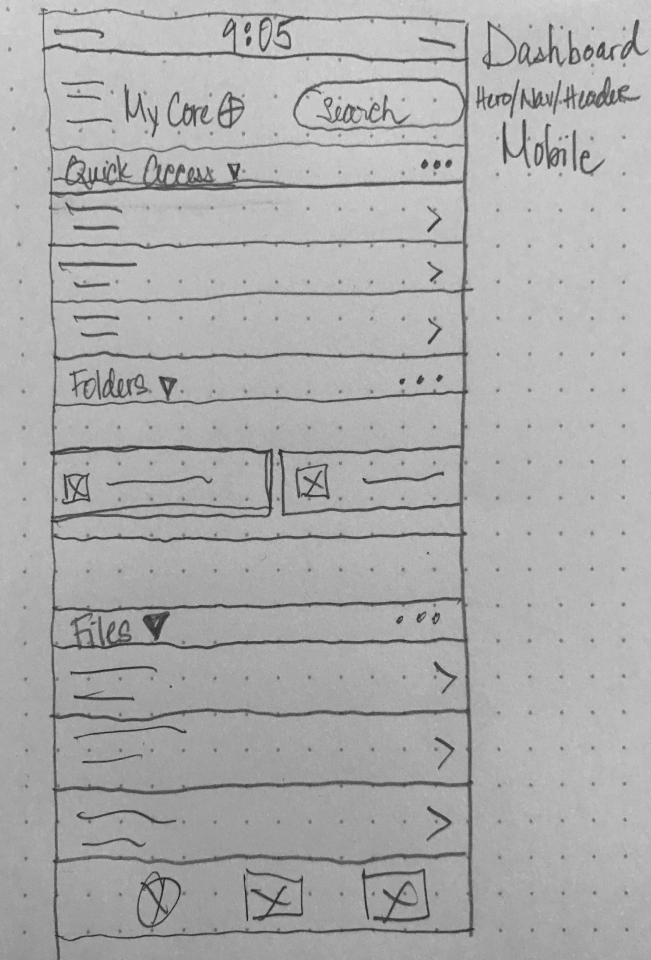 9:05
Dashboard
Hero/Nav/Header
Mobile
My Core
Search
Quick Access
Folders
Files